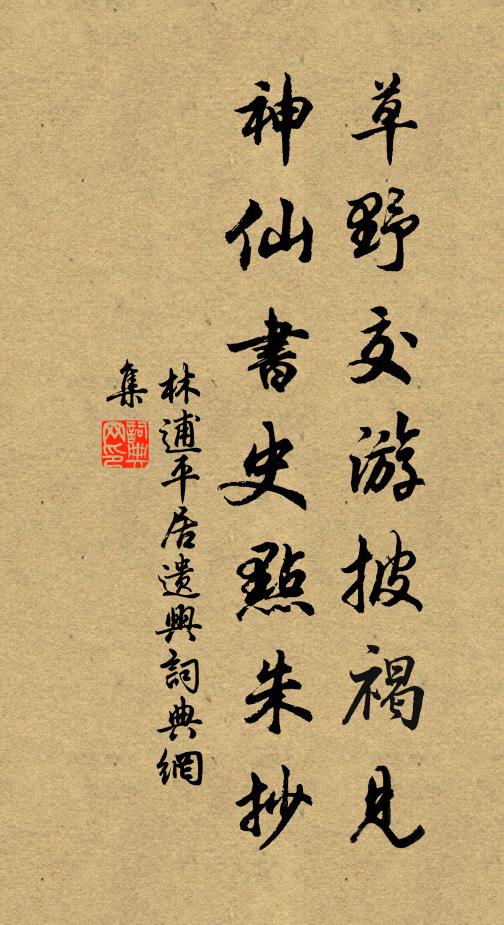 草野交游披褐見
神仙書史點朱抄
林逋平居遣興詞典網
集
詞典
网印